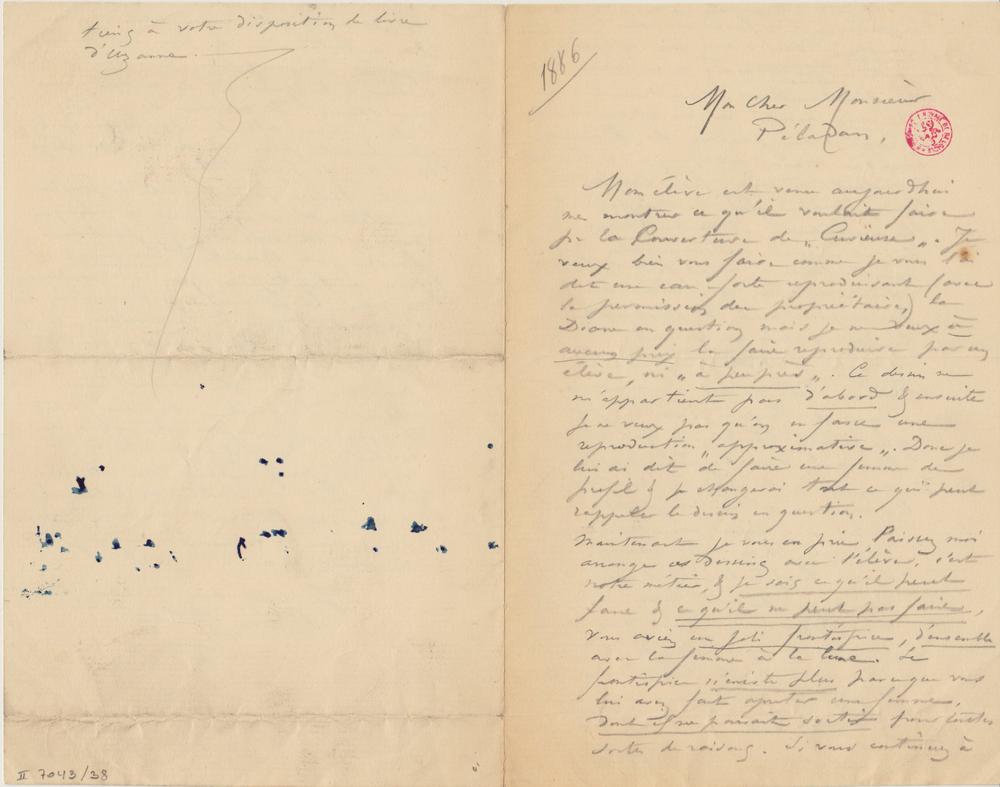 tiens à votre disposition le livre
d'Uzanne
II 7043/38
1886
Mon Cher Monsieur
Péladan,
Mon élève est venu aujourd'hui
me montrer ce qu'il voulait faire
pr la Couverture de „Curieuse„. Je
veux bien vous faire comme je vous l'ai
dit une eau-forte reproduisant (avec
la permission du propriétaire,) la
Diane en question mais je ne veux à
aucun prix la faire reproduire par un
élève, ni „à peu près„. Ce dessin ne
m'appartient pas d'abord & ensuite
je ne veux pas qu'on en fasse une
reproduction „approximative„. Donc je
lui ai dit de faire une femme de
profil & je changerai tout ce qui peut
rappeler le dessin en question.
Maintenant je vous en prie laissez moi
arranger ces dessins avec l'élève, c'est
notre métier, & je sais ce qu'il peut
faire & ce qu'il ne peut pas faire,
vous aviez un joli frontispice, d'ensemble
avec la femme à la lune. Le
frontispice n'existe plus parceque vous
lui avez fait ajouter une femme,
dont il ne pouvait sortir pour toutes
sortes de raisons. Si vous continuez à